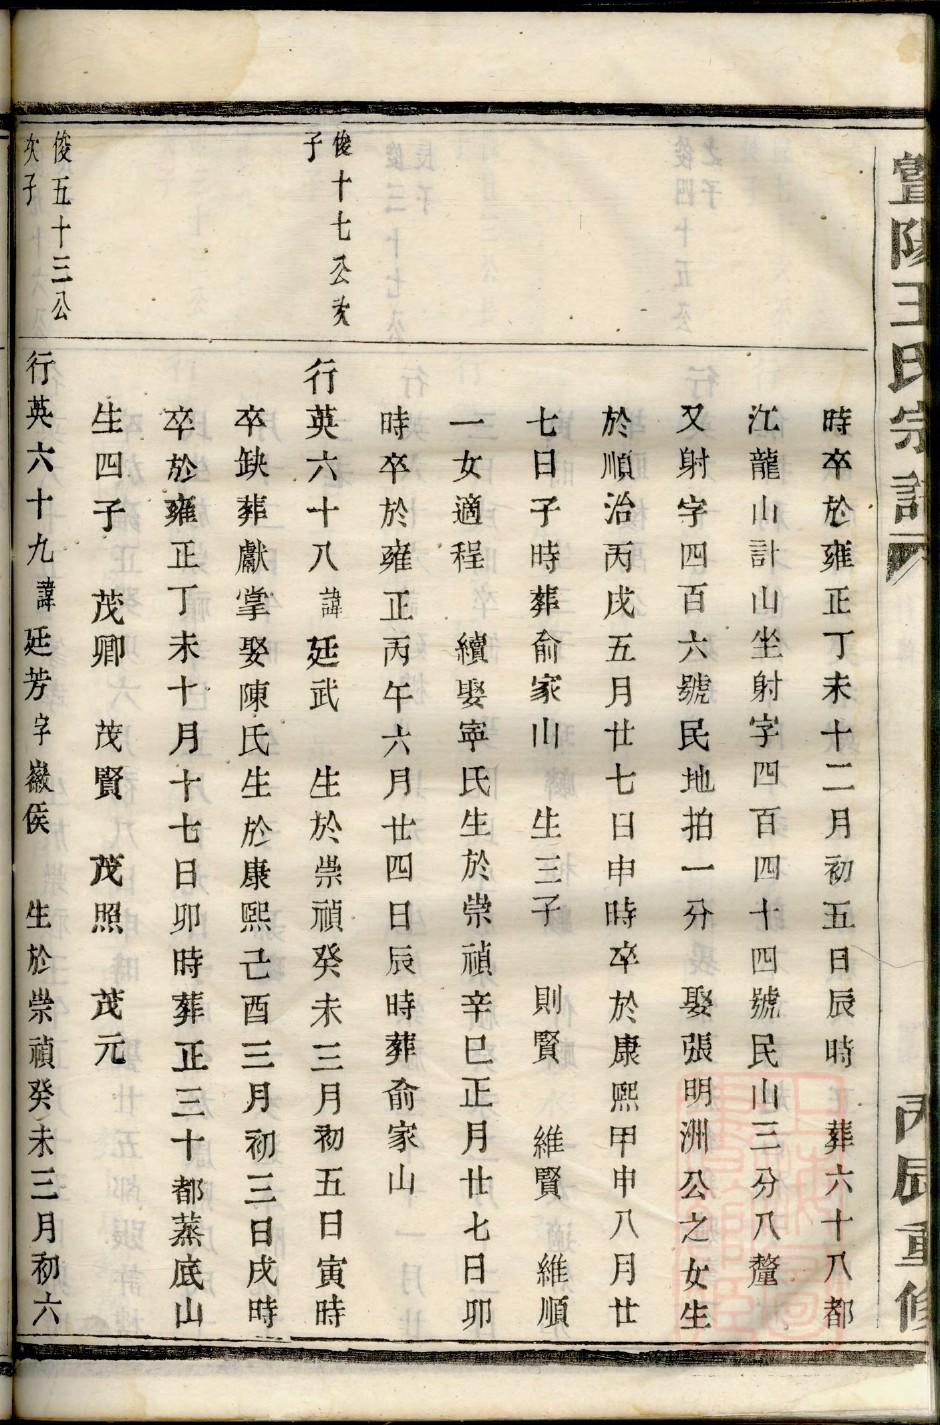 暨陽王氏宗譜
丙辰重修
時卒於雍正丁未十二月初五日辰時 葬六十八都
江龍山計山坐射字四百四十四號民山三分八釐
又射字四百六號民地拍一分 娶張明洲公之女生
於順治丙戌五月廿七日申時卒於康熙甲申八月廿
七日子時葬俞家山 生三子 則賢 維賢 維順
一女適程 續娶寧氏生於崇禎辛巳正月廿七日卯
時卒於雍正丙午六月廿四日辰時葬俞家山
俊十七公次
子
行英六十八諱廷武 生於崇禎癸未三月初五日寅時
卒缺葬獻掌娶陳氏生於康熙己酉三月初三日戌時
卒於雍正丁未十月十七日卯時葬正三十都蒸底山
生四子 茂卿 茂賢 茂照 茂元
俊五十三公
次子
行英六十九諱廷芳字嶽侯 生於崇禎癸未三月初六